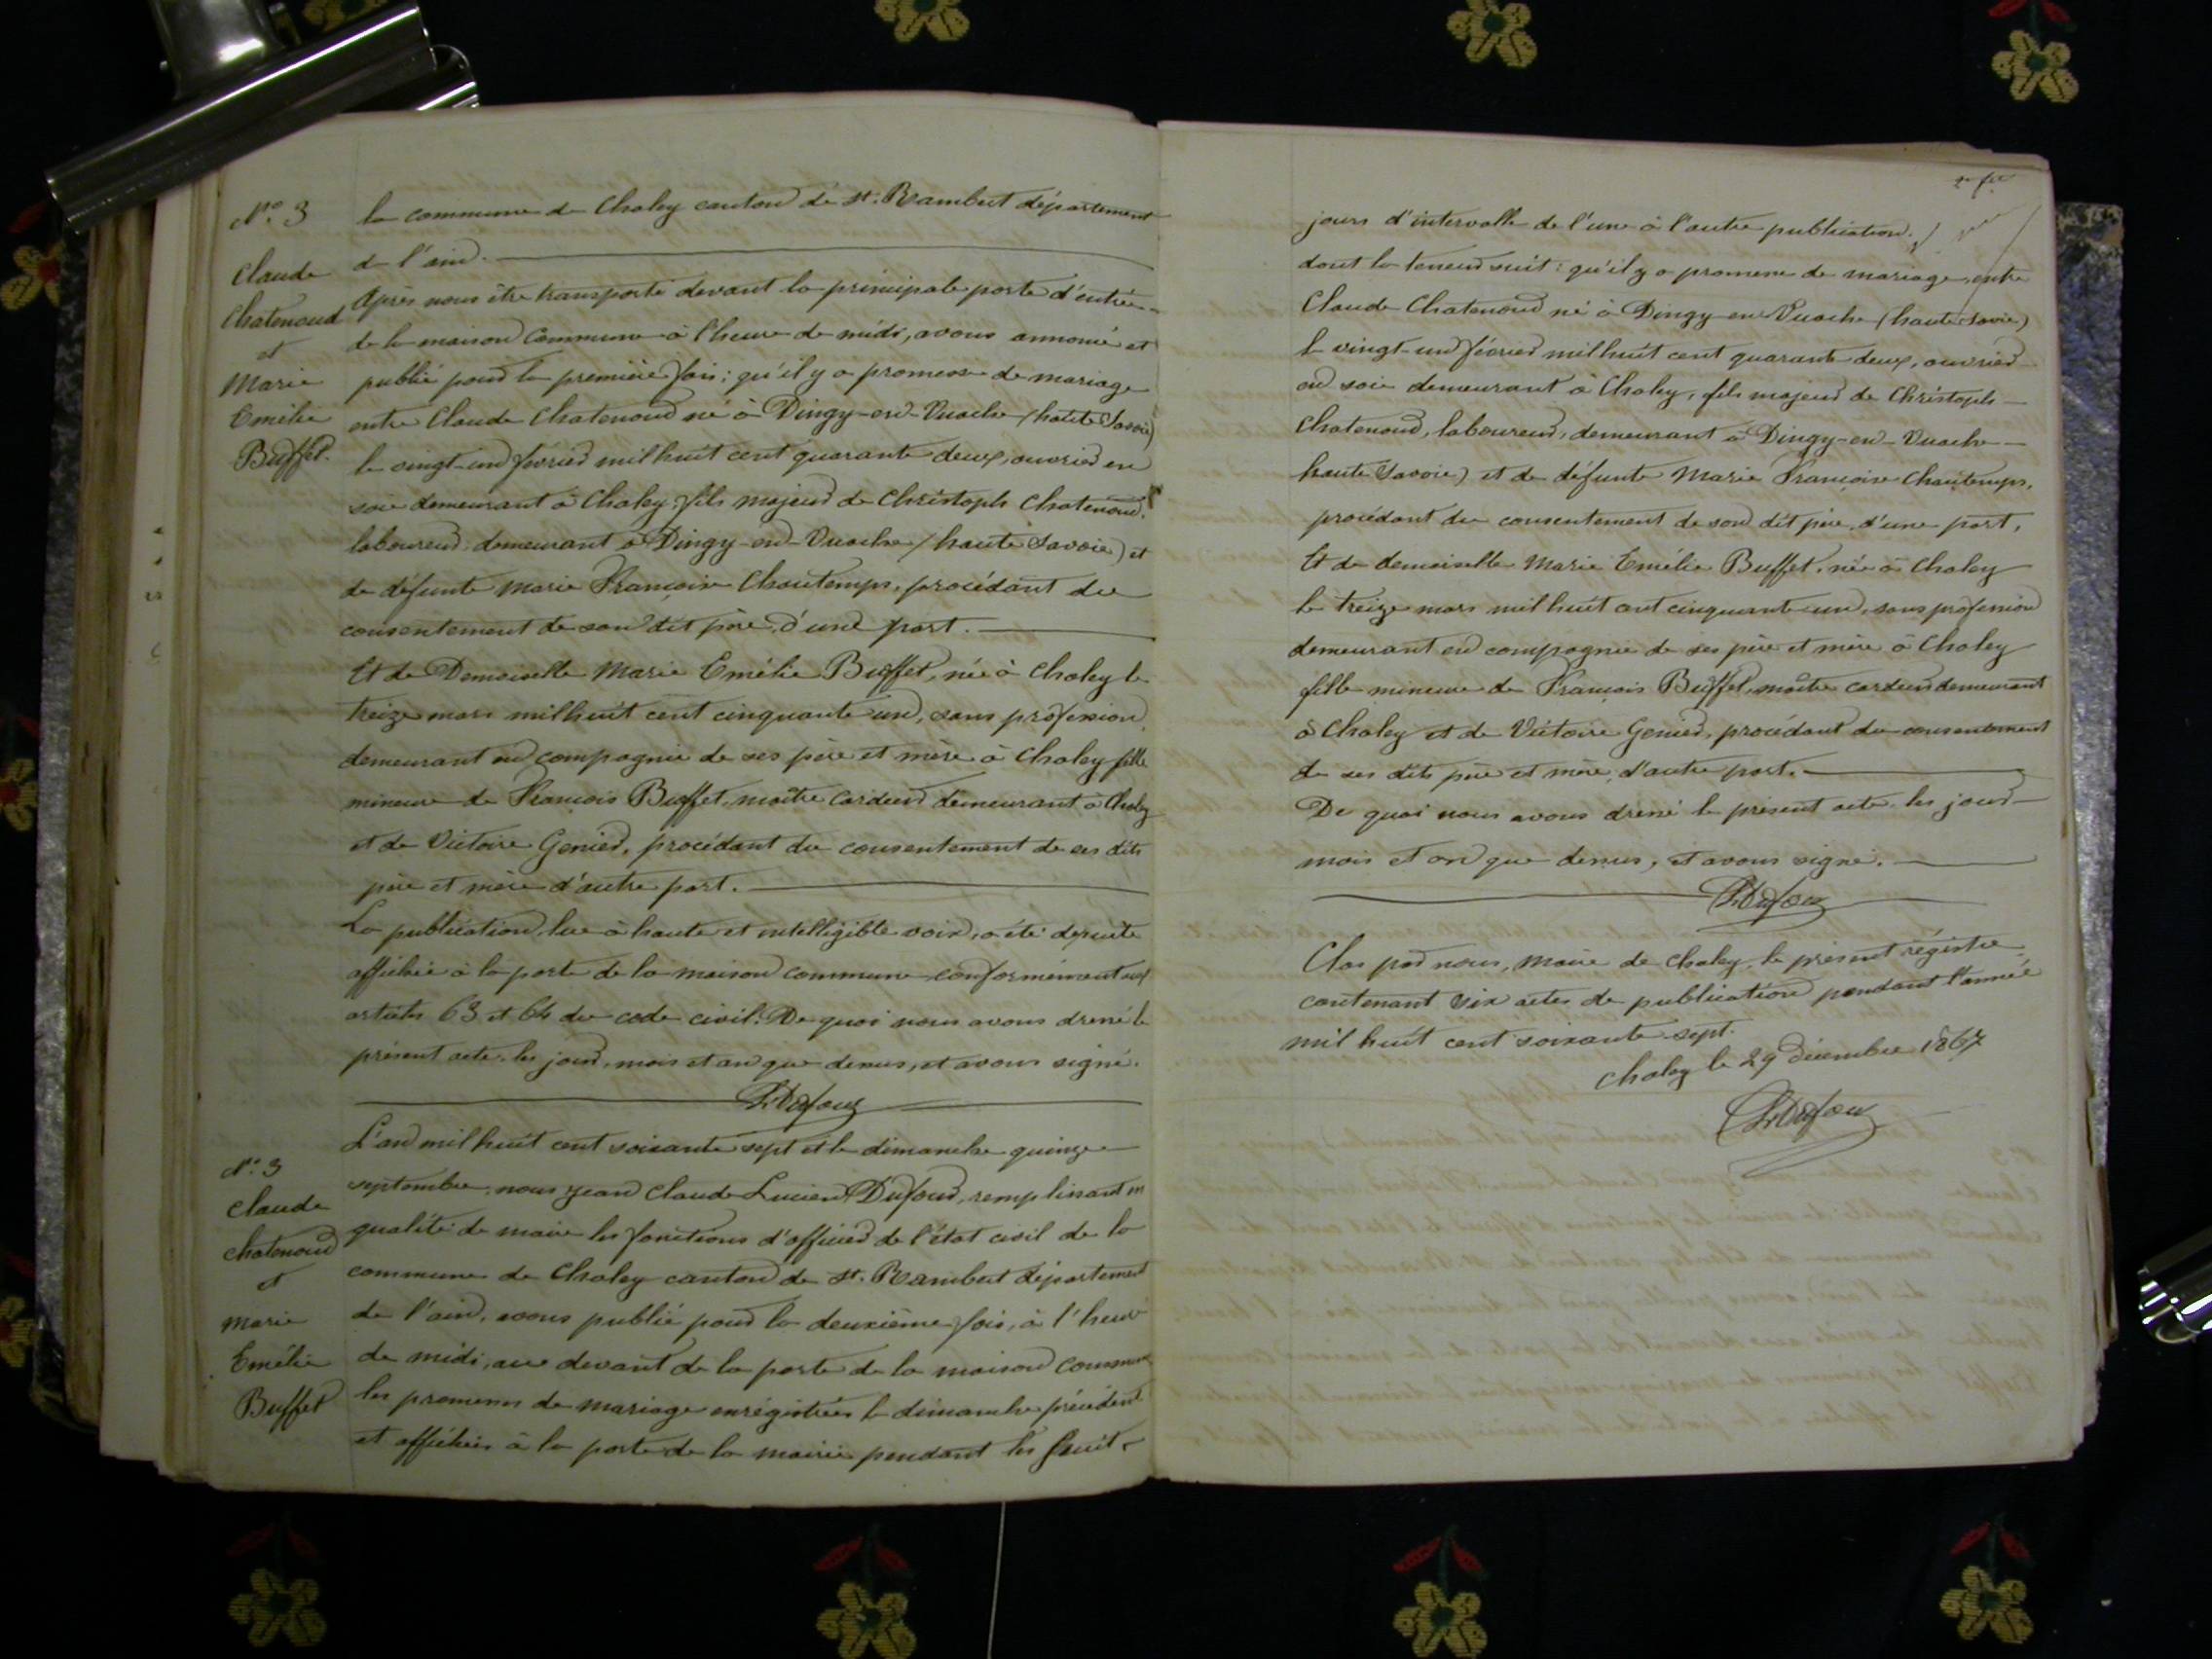 N.° 3
Claude
Chatenoud
et
Marie
Emélie
Buffet.
la commune de Chaley canton de St. Rambert département
de l'ain.
Après nous être transporté devant la principale porte d'entrée
de la maison Commune à l'heure de midi, avons annoncé et
publié pour la première fois; qu'il y a promesse de mariage
entre Claude Chatenoud né à Dingy-en-Vuache (haute Savoie)
le vingt-un février mil huit cent quarante deux, ouvrier en
soie demeurant à Chaley, fils majeur de Christophe Chatenoud,
laboureur, demeurant à Dingy-en-Vuache (haute Savoie) et
de défunte Marie Françoise Chautemps, procédant du
consentement de son dit père, d'une part.
Et de Demoiselle Marie Emélie Buffet, née à Chaley le
treize mars mil huit cent cinquante un, sans profession
demeurant en compagnie de ses père et mère à Chaley fille
mineure de François Buffet, maître cardeur demeurant à Chaley
et de Victoire Genier, procédant du consentement de ses dits
père et mère d'autre part.
La publication, lue à haute et intelligible voix, a été de suite
affichée à la porte de la maison commune conformément aux
articles 63 et 64 du code civil. De quoi nous avons dressé le
présent acte, les jour, mois et an que dessus, et avons signé.
L. Dufour
N.° 3
Claude
Chatenoud
et
Marie
Emélie
Buffet
L'an mil huit cent soixante sept et le dimanche quinze
septembre, nous Jean Claude Lucien Dufour, remplissant en
qualité de maire les fonctions d'officier de l'état civil de la
commune de Chaley canton de St. Rambert département
de l'ain, avons publié pour la deuxième fois, à l'heure
de midi, au devant de la porte de la maison commune
les promesses de mariage enrégistrées le dimanche précédent
et affichées à la porte de la mairie pendant les huit
jours d'intervalle de l'une à l'autre publication.
dont la teneur suit: qu'il y a promesse de mariage, entre
Claude Chatenoud né à Dingy-en-Vuache (haute Savoie)
le vingt-un février mil huit cent quarante deux, ouvrier
en soie demeurant à Chaley, fils majeur de Christophe
Chatenoud, laboureur, demeurant à Dingy-en-Vuache
haute Savoie) et de défunte Marie Françoise Chautemps,
procédant du consentement de son dit père, d'une part,
Et de demoiselle Marie Emélie Buffet, née à Chaley
le treize mars mil huit cent cinquante-un, sans profession
demeurant en compagnie de ses père et mère à Chaley
fille mineure de François Buffet, maître cardeur demeurant
à Chaley et de Victoire Genier, procédant du consentement
de ses dits père et mère, d'autre part.
De quoi nous avons dressé le présent acte, les jour
mois et an que dessus, et avons signé.
L. Dufour
Clos par nous, Maire de Chaley, le présent régistre
contenant six actes de publication pendant l'année
mil huit cent soixante-sept.
Chaley le 29 décembre 1867
L. Dufour